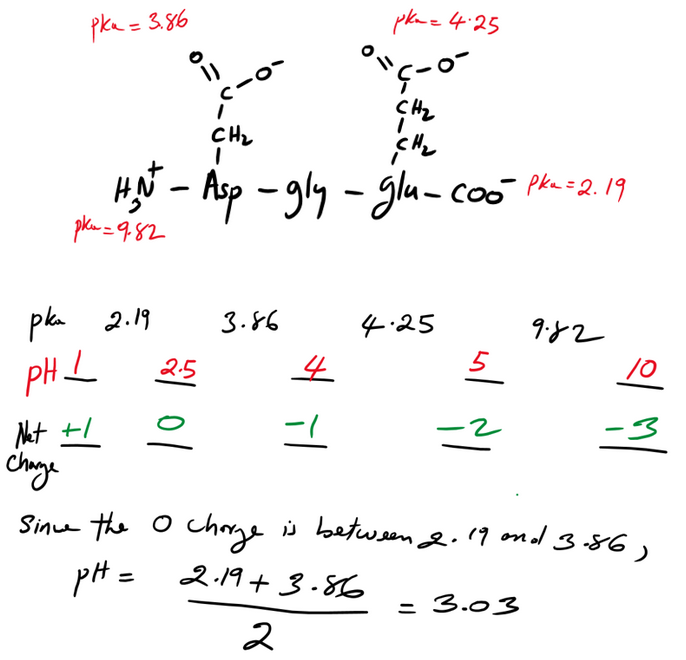 pka = 3.86
pka = 4.25
O
C
O⁻
O
C
O⁻
CH₂
CH₂
CH₂
H₃N⁺ – Asp – gly – glu – COO⁻
pka = 2.19
pka = 9.82
pka 2.19 3.86 4.25 9.82
pH 1 2.5 4 5 10
Net +1 0 -1 -2 -3
Charge
Since the 0 charge is between 2.19 and 3.86,
pH = 2.19 + 3.86 = 3.03
2